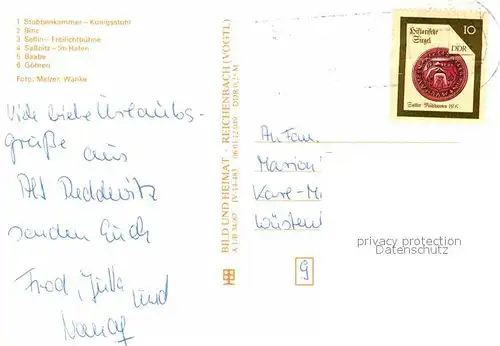 1 Stubbenkammer – Königsstuhl
2 Binz
3 Sellin – Freilichtbühne
4 Saßnitz – Im Hafen
5 Baabe
6 Göhren
Foto: Melzer, Wanke
Viele liebe Urlaubs-
grüße aus
Alt Reddewitz
senden Euch
Fred, Jutta und
Nancy
BILD UND HEIMAT · REICHENBACH (VOGTL)
A 1/B 34/67 IV-14-483 06 01 12 049 DDR 0,25 M
Historische
Siegel
10
DDR
1516
An Fam.
Marion
Karl-M
Wüsten
G
privacy protection
Datenschutz